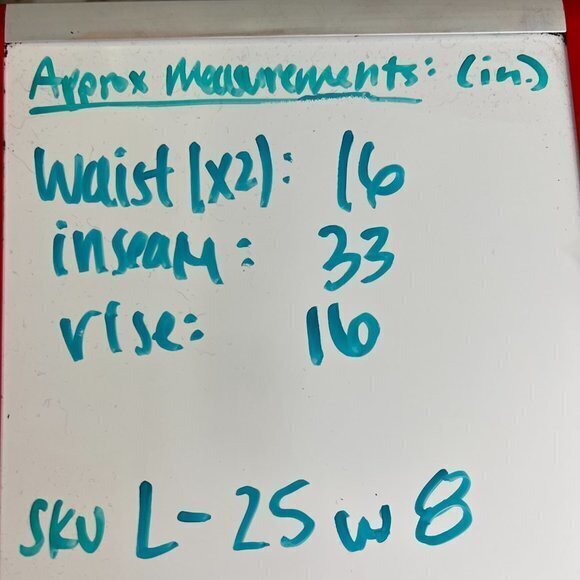 Approx Measurements: (in.)
Waist (x2): 16
inseam: 33
rise: 16
SKU L-25 W 8